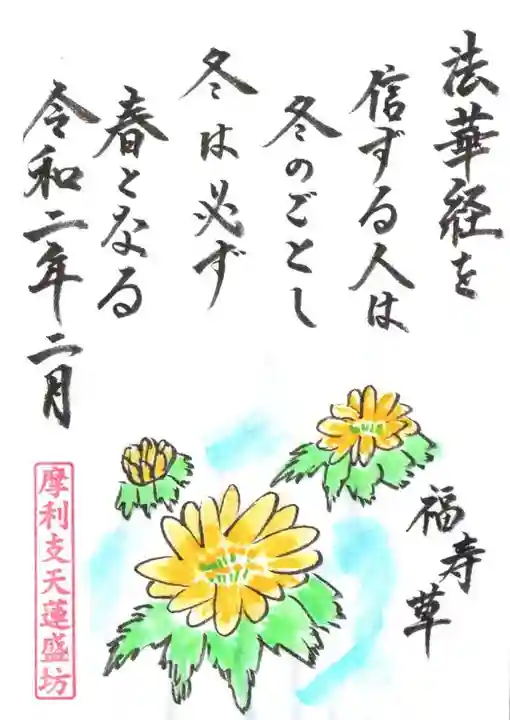 法華経を
信ずる人は
冬のごとし
冬は必ず
春となる
令和二年二月
福寿草
摩利支天蓮盛坊